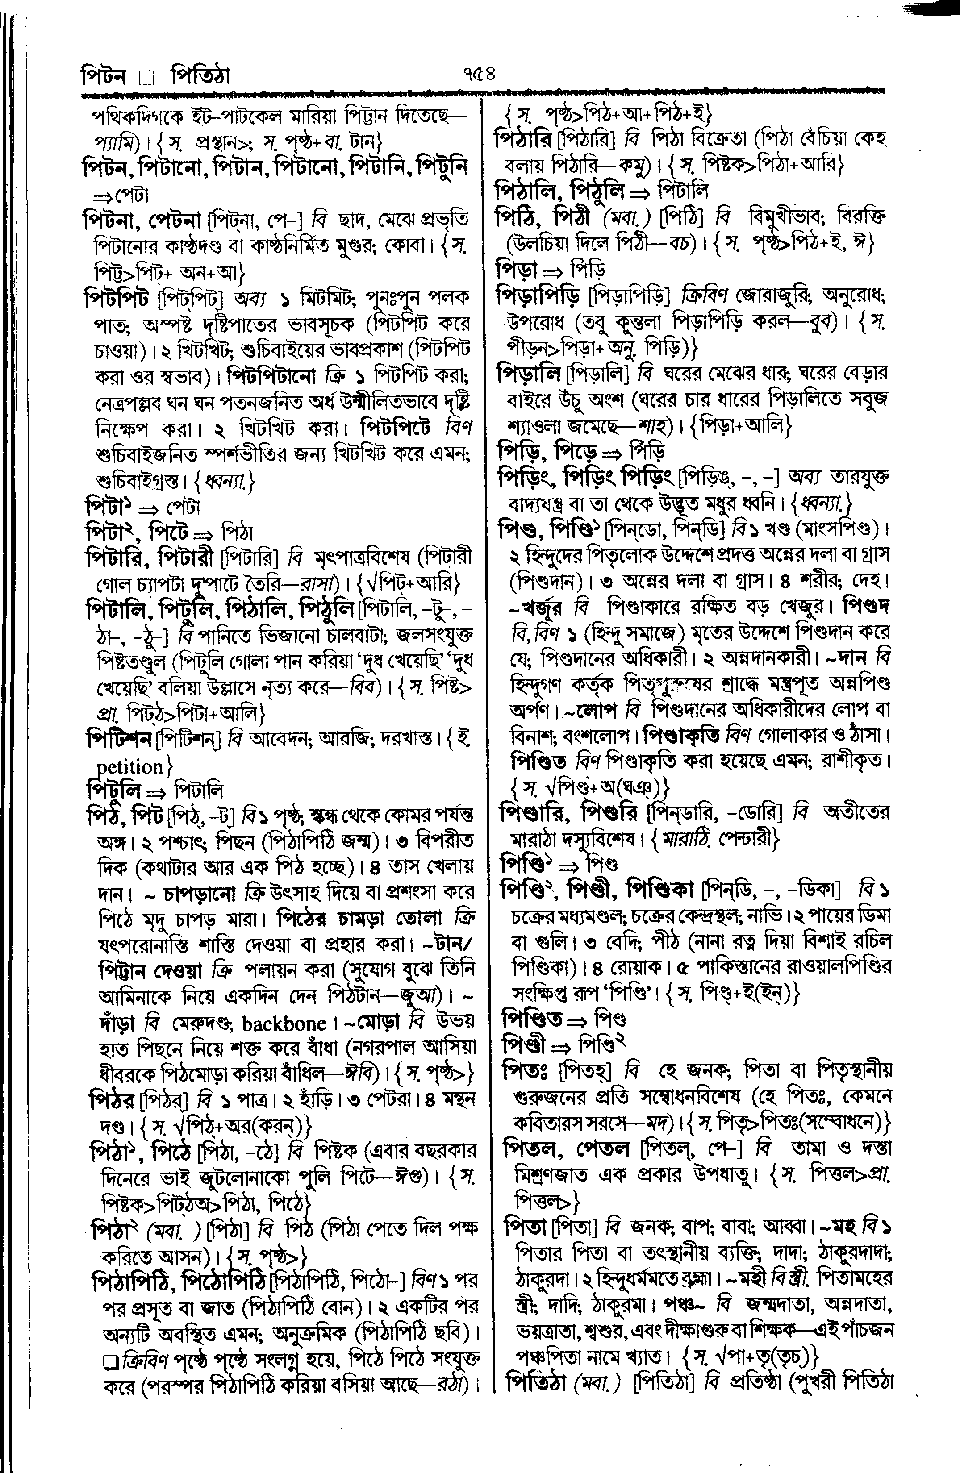 পিটন □ পিতিঠা
৭৫৪
পথিকদিগকে ইট-পাটকেল মারিয়া পিট্টান দিতেছে—
প্যামি)। {স. প্রস্থান>; স. পৃষ্ঠ+বা. টান}
পিটন, পিটানো, পিটান, পিটানো, পিটানি, পিটুনি
⇒পেটা
পিটনা, পেটনা [পিট্‌না, পে–] বি ছাদ, মেঝে প্রভৃতি
পিটানোর কাষ্ঠদণ্ড বা কাষ্ঠনির্মিত মুগুর; কোবা। {স.
পিট্ট>পিট+ অন+আ}
পিটপিট [পিট্‌পিট্] অব্য ১ মিটমিট; পুনঃপুন পলক
পাত; অস্পষ্ট দৃষ্টিপাতের ভাবসূচক (পিটপিট করে
চাওয়া)। ২ খিটখিট; শুচিবাইয়ের ভাবপ্রকাশ (পিটপিট
করা ওর স্বভাব)। পিটপিটানো ক্রি ১ পিটপিট করা;
নেত্রপল্লব ঘন ঘন পতনজনিত অর্ধ উন্মীলিতভাবে দৃষ্টি
নিক্ষেপ করা। ২ খিটখিট করা। পিটপিটে বিণ
শুচিবাইজনিত স্পর্শভীতির জন্য খিটখিট করে এমন;
শুচিবাইগ্রস্ত। {ধ্বন্যা.}
পিটা১ ⇒ পেটা
পিটা২, পিটে ⇒ পিঠা
পিটারি, পিটারী [পিটারি] বি মৃৎপাত্রবিশেষ (পিটারী
গোল চ্যাপটা দু'পাটে তৈরি—রাসা)। {√পিট+আরি}
পিটালি, পিটুলি, পিঠালি, পিঠুলি [পিটালি, -টু–, -
ঠা–, -ঠু–] বি পানিতে ভিজানো চালবাটা; জলসংযুক্ত
পিষ্টতণ্ডুল (পিটুলি গোলা পান করিয়া 'দুধ খেয়েছি' 'দুধ
খেয়েছি' বলিয়া উল্লাসে নৃত্য করে—বিব)। {স. পিষ্ট>
প্রা. পিটঠ>পিটা+আলি}
পিটিশন [পিটিশন্] বি আবেদন; আরজি; দরখাস্ত। {ই.
petition}
পিটুলি ⇒ পিটালি
পিঠ, পিট [পিঠ্, -ট] বি ১ পৃষ্ঠ; স্কন্ধ থেকে কোমর পর্যন্ত
অঙ্গ। ২ পশ্চাৎ; পিছন (পিঠাপিঠি জন্ম)। ৩ বিপরীত
দিক (কথাটার আর এক পিঠ হচ্ছে)। ৪ তাস খেলায়
দান। ~ চাপড়ানো ক্রি উৎসাহ দিয়ে বা প্রশংসা করে
পিঠে মৃদু চাপড় মারা। পিঠের চামড়া তোলা ক্রি
যৎপরোনাস্তি শাস্তি দেওয়া বা প্রহার করা। ~টান/
পিট্টান দেওয়া ক্রি পলায়ন করা (সুযোগ বুঝে তিনি
আমিনাকে নিয়ে একদিন দেন পিঠটান—জুআ)। ~
দাঁড়া বি মেরুদণ্ড; backbone। ~মোড়া বি উভয়
হাত পিছনে নিয়ে শক্ত করে বাঁধা (নগরপাল আসিয়া
ধীবরকে পিঠমোড়া করিয়া বাঁধিল—ঈবি)। {স. পৃষ্ঠ>}
পিঠর [পিঠর্] বি ১ পাত্র। ২ হাঁড়ি। ৩ পেটরা। ৪ মন্থন
দণ্ড। {স. √পিঠ+অর(করন্)}
পিঠা১, পিঠে [পিঠা, -ঠে] বি পিষ্টক (এবার বছরকার
দিনেরে ভাই জুটলোনাকো পুলি পিটে—ঈগু)। {স.
পিষ্টক>পিট্‌ঠঅ>পিঠা, পিঠে}
পিঠা২ (মবা.) [পিঠা] বি পিঠ (পিঠা পেতে দিল পক্ষ
করিতে আসন)। {স. পৃষ্ঠ>}
পিঠাপিঠি, পিঠোপিঠি [পিঠাপিঠি, পিঠো–] বিণ ১ পর
পর প্রসূত বা জাত (পিঠাপিঠি বোন)। ২ একটির পর
অন্যটি অবস্থিত এমন; অনুক্রমিক (পিঠাপিঠি ছবি)।
□ ক্রিবিণ পৃষ্ঠে পৃষ্ঠে সংলগ্ন হয়ে, পিঠে পিঠে সংযুক্ত
করে (পরস্পর পিঠাপিঠি করিয়া বসিয়া আছে—রঠা)।
{স. পৃষ্ঠ>পিঠ+আ+পিঠ+ই}
পিঠারি [পিঠারি] বি পিঠা বিক্রেতা (পিঠা বেঁচিয়া কেহ
বলায় পিঠারি—কমু)। {স. পিষ্টক>পিঠা+আরি}
পিঠালি, পিঠুলি ⇒ পিটালি
পিঠি, পিঠী (মবা.) [পিঠি] বি বিমুখীভাব; বিরক্তি
(উলচিয়া দিলে পিঠী—বচ)। {স. পৃষ্ঠ>পিঠ+ই, ঈ}
পিড়া ⇒ পিড়ি
পিড়াপিড়ি [পিড়াপিড়ি] ক্রিবিণ জোরাজুরি; অনুরোধ;
উপরোধ (তবু কুন্তলা পিড়াপিড়ি করল—বুব)। {স.
পীড়ন>পিড়া+অনু. পিড়ি)}
পিড়ালি [পিড়ালি] বি ঘরের মেঝের ধার; ঘরের বেড়ার
বাইরে উঁচু অংশ (ঘরের চার ধারের পিড়ালিতে সবুজ
শ্যাওলা জমেছে—শাহ)। {পিড়া+আলি}
পিড়ি, পিড়ে ⇒ পিঁড়ি
পিড়িং, পিড়িং পিড়িং [পিড়িঙ্, -, -] অব্য তারযুক্ত
বাদ্যযন্ত্র বা তা থেকে উদ্ভূত মধুর ধ্বনি। {ধ্বন্যা.}
পিণ্ড, পিণ্ডি১ [পিন্‌ডো, পিন্‌ডি] বি ১ খণ্ড (মাংসপিণ্ড)।
২ হিন্দুদের পিতৃলোক উদ্দেশে প্রদত্ত অন্নের দলা বা গ্রাস
(পিণ্ডদান)। ৩ অন্নের দলা বা গ্রাস। ৪ শরীর; দেহ।
~খর্জূর বি পিণ্ডাকারে রক্ষিত বড় খেজুর। পিণ্ডদ
বি, বিণ ১ (হিন্দু সমাজে) মৃতের উদ্দেশে পিণ্ডদান করে
যে; পিণ্ডদানের অধিকারী। ২ অন্নদানকারী। ~দান বি
হিন্দুগণ কর্তৃক পিতৃপুরুষের শ্রাদ্ধে মন্ত্রপূত অন্নপিণ্ড
অর্পণ। ~লোপ বি পিণ্ডদানের অধিকারীদের লোপ বা
বিনাশ; বংশলোপ। পিণ্ডাকৃতি বিণ গোলাকার ও ঠাসা।
পিণ্ডিত বিণ পিণ্ডাকৃতি করা হয়েছে এমন; রাশীকৃত।
{স. √পিণ্ড+অ(ঘঞ)}
পিণ্ডারি, পিণ্ডরি [পিন্‌ডারি, -ডোরি] বি অতীতের
মারাঠা দস্যুবিশেষ। {মারাঠি. পেন্ঢারী}
পিণ্ডি১ ⇒ পিণ্ড
পিণ্ডি২, পিণ্ডী, পিণ্ডিকা [পিন্‌ডি, -, -ডিকা] বি ১
চক্রের মধ্যমণ্ডল; চক্রের কেন্দ্রস্থল; নাভি। ২ পায়ের ডিমা
বা গুলি। ৩ বেদি; পীঠ (নানা রত্ন দিয়া বিশাই রচিল
পিণ্ডিকা)। ৪ রোয়াক। ৫ পাকিস্তানের রাওয়ালপিণ্ডির
সংক্ষিপ্ত রূপ 'পিণ্ডি'। {স. পিণ্ড+ই(ইন্)}
পিণ্ডিত ⇒ পিণ্ড
পিণ্ডী ⇒ পিণ্ডি২
পিতঃ [পিতহ্] বি হে জনক; পিতা বা পিতৃস্থানীয়
গুরুজনের প্রতি সম্বোধনবিশেষ (হে পিতঃ, কেমনে
কবিতারস সরসে—মদ)। {স. পিতৃ>পিতঃ(সম্বোধনে)}
পিতল, পেতল [পিতল্, পে–] বি তামা ও দস্তা
মিশ্রণজাত এক প্রকার উপধাতু। {স. পিত্তল>প্রা.
পিত্তল>}
পিতা [পিতা] বি জনক; বাপ; বাবা; আব্বা। ~মহ বি ১
পিতার পিতা বা তৎস্থানীয় ব্যক্তি; দাদা; ঠাকুরদাদা;
ঠাকুরদা। ২ হিন্দুধর্মমতে ব্রহ্মা। ~মহী বি স্ত্রী. পিতামহের
স্ত্রী; দাদি; ঠাকুরমা। পঞ্চ~ বি জন্মদাতা, অন্নদাতা,
ভয়ত্রাতা, শ্বশুর, এবং দীক্ষাগুরু বা শিক্ষক—এই পাঁচজন
পঞ্চপিতা নামে খ্যাত। {স. √পা+তৃ(তৃচ্)}
পিতিঠা (মবা.) [পিতিঠা] বি প্রতিষ্ঠা (পুখরী পিতিঠা